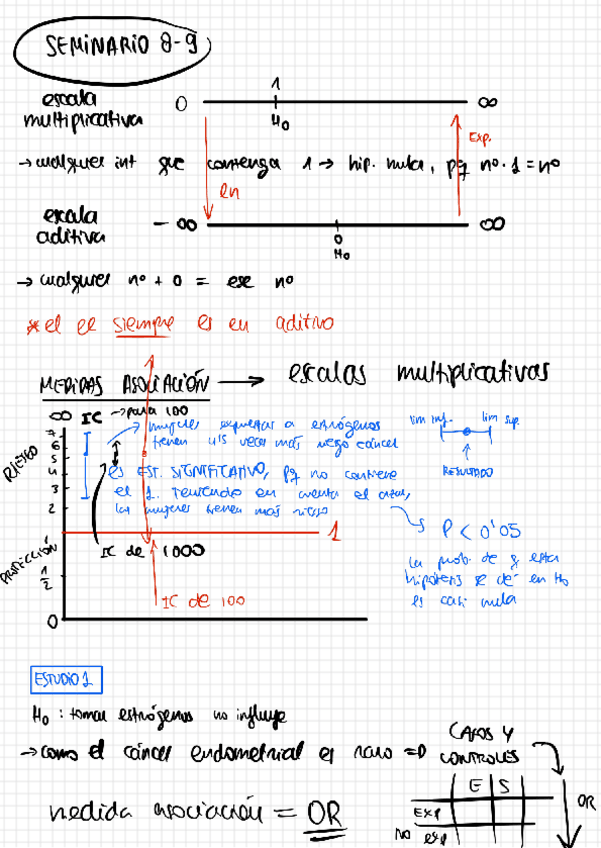 SEMINARIO 8-9
escala multiplicativa
0
1
H0
∞
→ cualquier int que contenga 1 → hip. nula, pq nº · 1 = nº
ln
Exp.
escala aditiva
- ∞
0
H0
∞
→ cualquier nº + 0 = ese nº
* el ee siempre es en aditivo
MEDIDAS ASOCIACIÓN → escalas multiplicativas
∞
IC → para 100
7
6
5
4
3
2
1
1/2
0
RIESGO
PROTECCIÓN
mujeres expuestas a estrógenos
tienen 4'5 veces más riesgo cáncer
es EST. SIGNIFICATIVO, pq no contiene
el 1. Teniendo en cuenta el azar,
las mujeres tienen más riesgo
lim inf.
lim sup.
RESULTADO
1
IC de 1000
IC de 100
P < 0'05
la prob. de q esta
hipótesis se dé en H0
es casi nula
ESTUDIO 1
H0 : tomar estrógenos no influye
→ como el cáncer endometrial es raro ⇒ CASOS Y CONTROLES
E S
EXP
NO exp
OR
medida asociación = OR